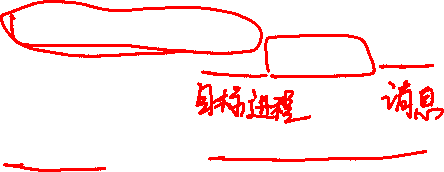 目标进程 消息